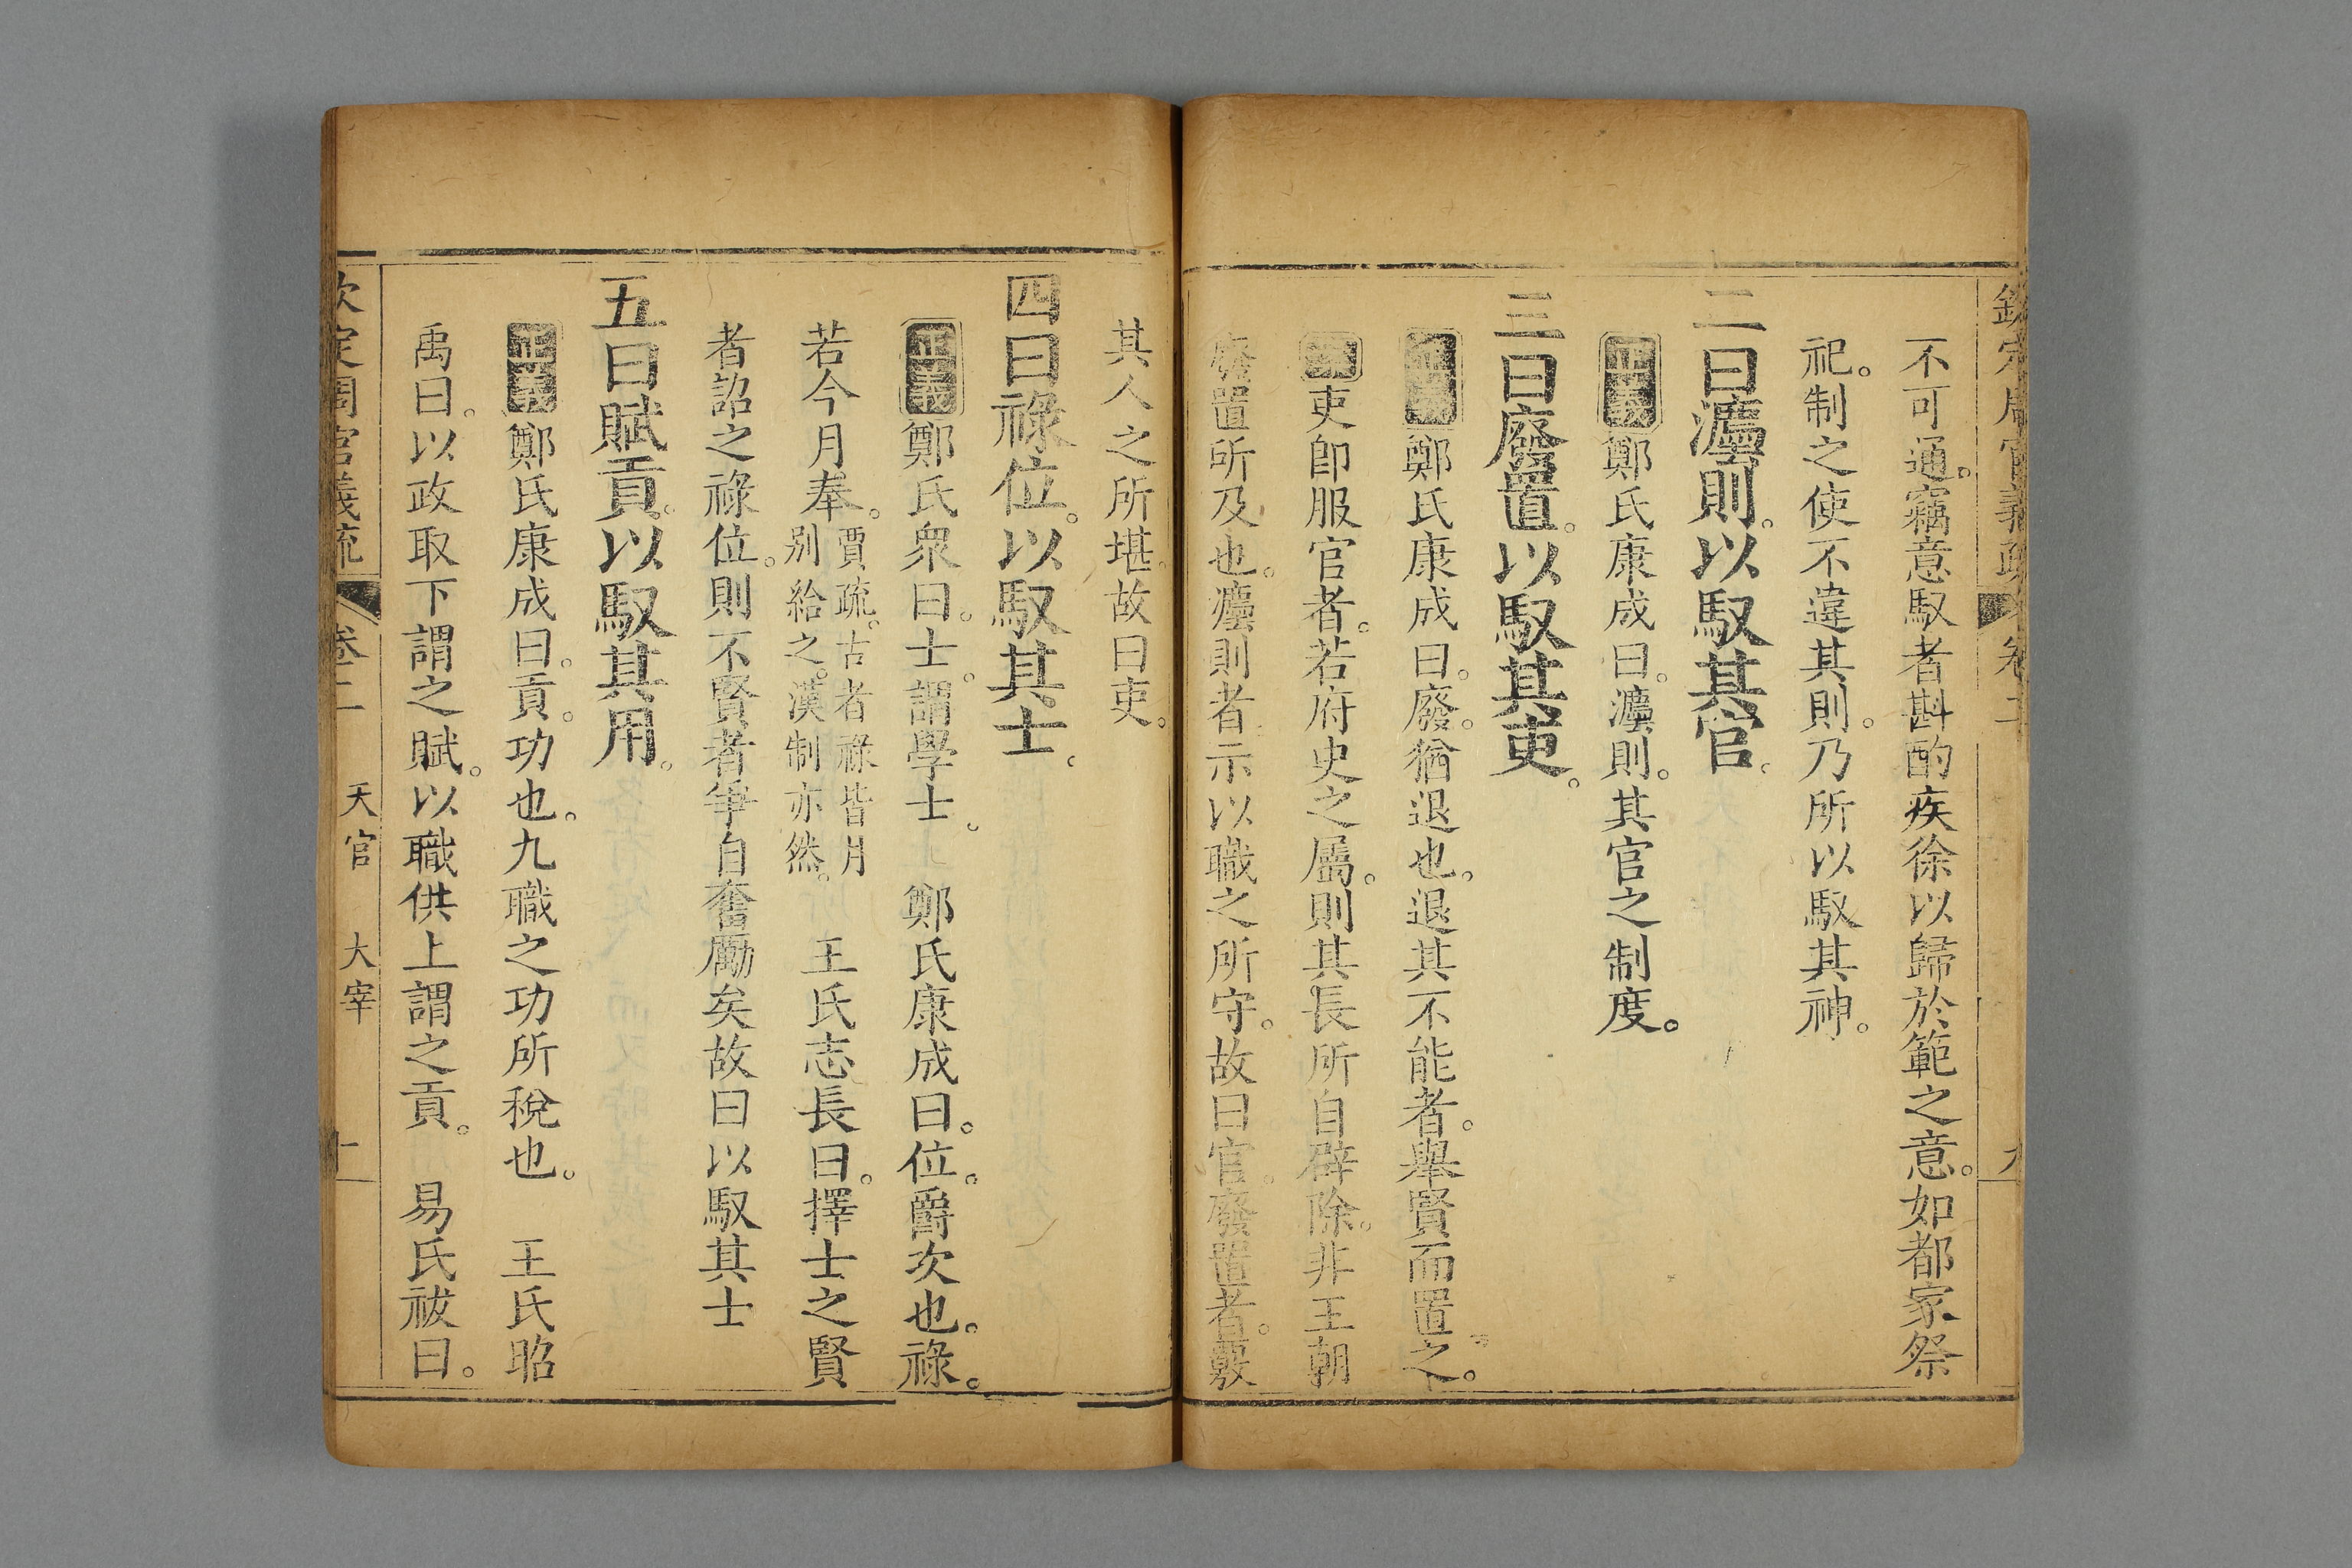 欽定周官義疏 卷二
不可通。竊意馭者斟酌疾徐以歸於範之意。如都家祭
祀。制之使不違其則。乃所以馭其神。
二曰灋則。以馭其官。
正義鄭氏康成曰。灋則。其官之制度。
三曰廢置。以馭其吏。
正義鄭氏康成曰。廢。猶退也。退其不能者。舉賢而置之。
吏卽服官者。若府史之屬。則其長所自辟除。非王朝
廢置所及也。灋則者示以職之所守。故曰官。廢置者。覈
其人之所堪。故曰吏。
四曰祿位。以馭其士。
正義鄭氏衆曰。士。謂學士。 鄭氏康成曰。位。爵次也。祿。
若今月奉。賈疏。古者祿皆月
别給之。漢制亦然。 王氏志長曰。擇士之賢
者詔之祿位。則不賢者爭自奮勵矣故曰以馭其士
五曰賦貢。以馭其用。
正義鄭氏康成曰。貢。功也。九職之功所稅也。 王氏昭
禹曰。以政取下謂之賦。以職供上謂之貢。 易氏祓曰。
欽定周官義疏 卷二 天官 大宰